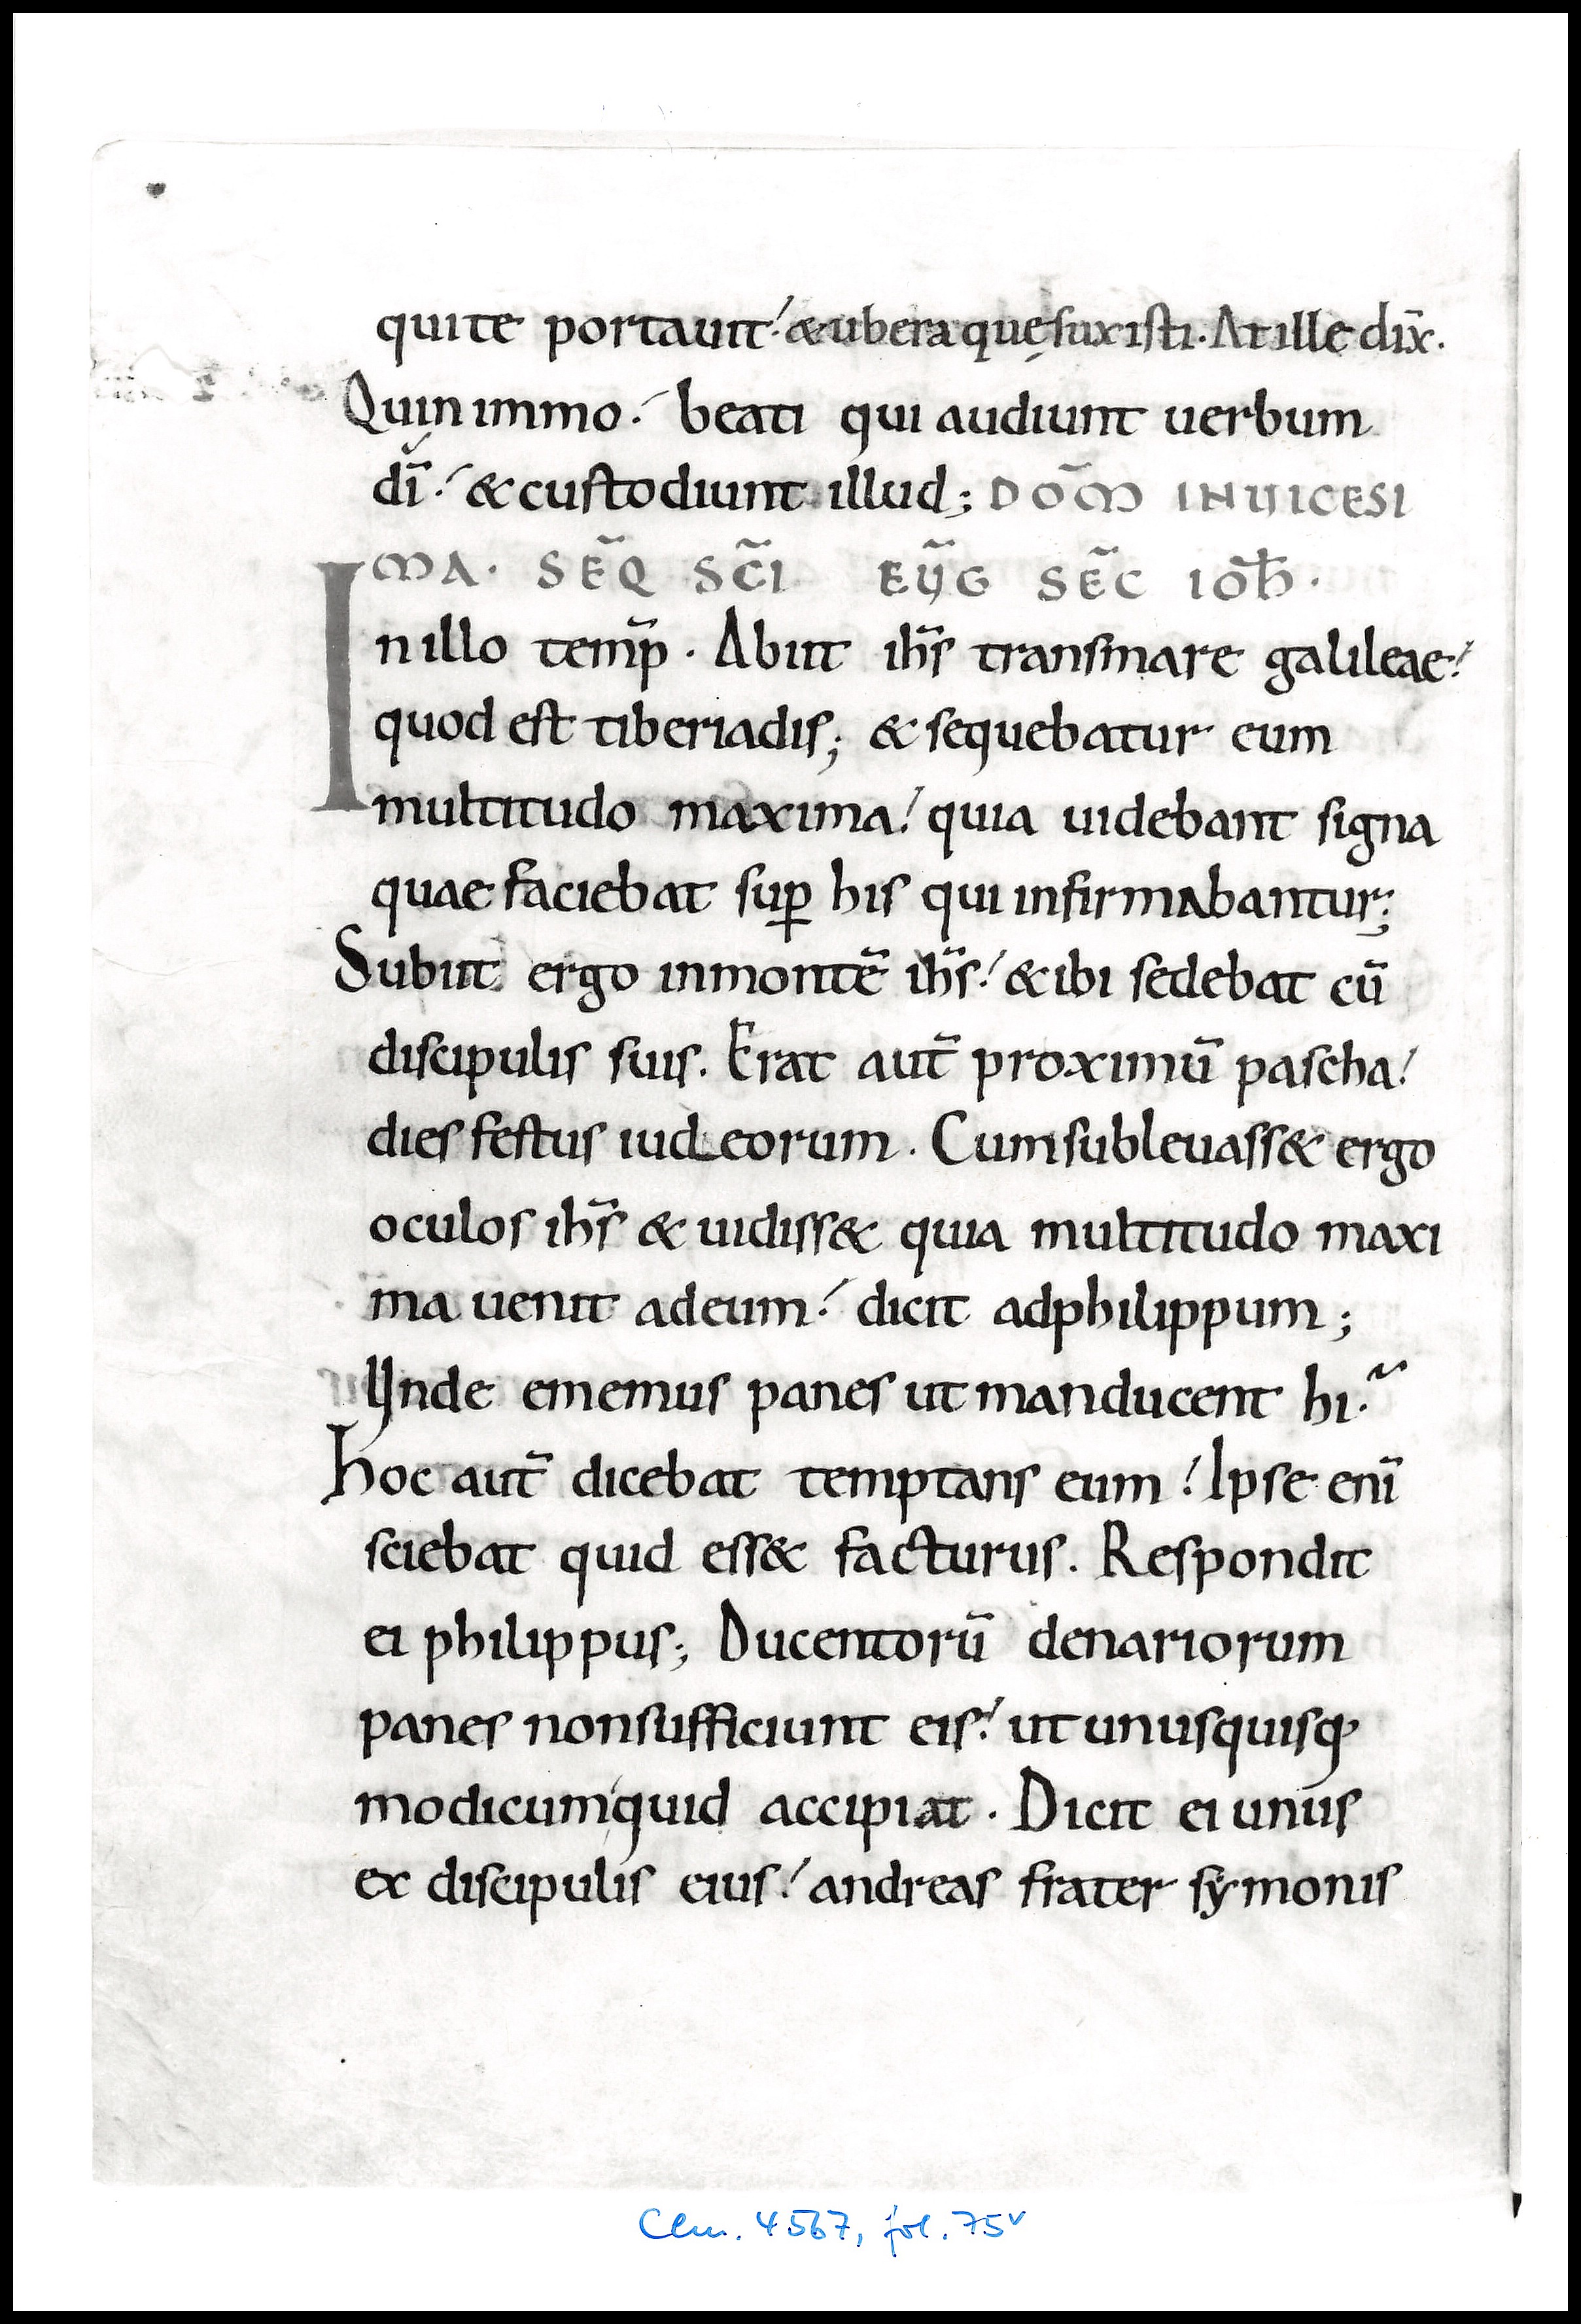 qui te portauit! & ubera quę suxisti. At ille dix̄.
Quin immo! beati qui audiunt uerbum
dī! & custodiunt illud; DOM̄ IN UICESI
MA. SEQ̄ SCĪ EŪG SEC̄ IOH̄.
In illo temp̄. Abiit ih̄s trans mare galileae!
quod est tiberiadis; & sequebatur eum
multitudo maxima! quia uidebant signa
quae faciebat sup̱ his qui infirmabantur;
Subiit ergo in montē ih̄s! & ibi sedebat cū
discipulis suis. Erat aut̄ proximū pascha!
dies festus iudęorum. Cum subleuass& ergo
oculos ih̄s & uidiss& quia multitudo maxi
ma uenit ad eum! dicit ad philippum;
Unde ememus panes ut manducent hi.~
Hoc aut̄ dicebat temptans eum! Ipse enī
sciebat quid ess& facturus. Respondit
ei philippus; Ducentorū denariorum
panes non sufficiunt eis! ut unusquisq;
modicum quid accipiat. Dicit ei unus
ex discipulis eius! andreas frater symonis
Clm. 4567, fol. 75v